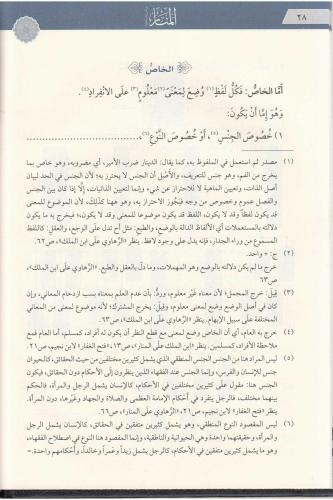 ٢٨
المنار
الخاص
أَمَّا الخَاصُّ: فَكُلُّ لَفْظٍ(١) وُضِعَ لِمَعْنَى(٢) مَعْلُومٍ(٣) عَلَى الانْفِرَادِ(٤).
وَهُوَ إِمَّا أَنْ يَكُونَ:
١) خُصُوصَ الجِنْسِ(٥)، أَوْ خُصُوصَ النَّوْعِ(٦)،
(١) مصدر ثم استعمل في الملفوظ به، كما يقال: الدينار ضرب الأمير، أي مضروبه، وهو خاص بما
يخرج من الفم، وهو جنس للتعريف، والأصل أن الجنس لا يحترز به؛ لأن الجنس في الحد لبيان
أصل الذات، وتعيين الماهية لا للاحتراز عن شيء؛ وإنما لتعيين الذاتيات، إلَّا إذا كان بين الجنس
والفصل عموم وخصوص من وجه فيجوز الاحتراز به، وهو ههنا كذلك، لأن الموضوع للمعنى
قد يكون لفظاً وقد لا يكون، اللفظ قد يكون موضوعا للمعنى وقد لا يكون؛ فيخرج به ما يكون
دلالته بالمستعملات أي الألفاظ الدالة بالوضع، والطبع: مثل أح تدل على الوجع، والعقل: كاللفظ
المسموع من وراء الجدار، فإنه يدل على وجود لافظ. ينظر «الرُّهاوي على ابن الملك»، ص٦٦.
(٢) ج: = واحد.
خرج ما لم يكن دلالته بالوضع وهو المهملات، وما دلَّ بالعقل والطبع. «الرُّهاوي على ابن الملك»،
ص٦٣.
(٣) قِيلَ: خرج المجمل؛ لأن معناه غير معلوم، وردَّ: بأن عدم العلم بمعناه بسب ازدحام المعاني، وإن
كان في أصل الوضع وضع لمعنى معلوم، وقيل: يخرج المشترك؛ لأنه موضوع لمعنى من المعاني
المختلفة على سبيل الإبهام. ينظر «الرُّهاوي على ابن الملك»، ص٦٣.
(٤) خرج به العام، أي أن الخاص وضع لمعنى مع قطع النظر أن يكون له أفراد كمسلم، أما العام فمع
ملاحظة الأفراد كمسلمين. ينظر «ابن الملك على المنار»، ص١٣، «فتح الغفار» لابن نجيم، ص٢١.
(٥) ليس المراد هنا من الجنس الجنس المنطقي الذي يشمل كثيرين مختلفين من حيث الحقائق، كالحيوان
جنس للإنسان والفرس، وإنما الجنس عند الفقهاء الذين ينظرون إلى الأحكام دون الحقائق، فيكون
الجنس هنا: مقول على كثيرين مختلفين في الأحكام، كالإنسان يشمل الرجل والمرأة، فالحكم
بينهما مختلف، فالرجل ينفرد في أحكام الإمامة العظمى والصلاة والجهاد وغيرها، دون المرأة.
ينظر «فتح الغفار» لابن نجيم، ص٢١، «الرُّهاوي على المنار»، ص٦٦.
(٦) ليس المقصود النوع المنطقي، وهو يشمل كثيرين متفقين في الحقائق، كالإنسان يشمل الرجل
والمرأة، وحقيقتهما واحدة وهي الحيوانية والناطقية، وإنما المقصود هنا النوع في اصطلاح الفقهاء،
وهو ما يشمل كثيرين متفقين في الأحكام، كالرجل يشمل زيداً وعمراً وخالداً، وأحكامهم واحدة. =